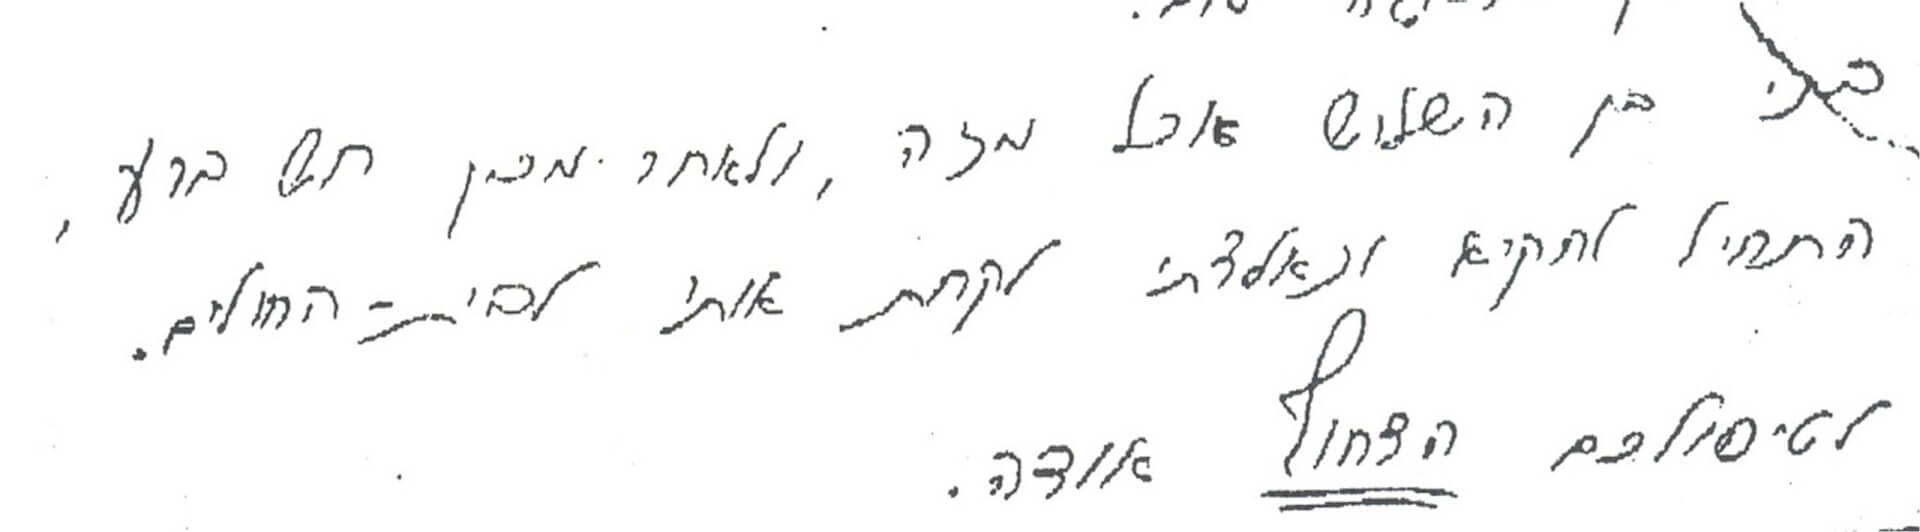 בני בן השלוש אכל מזה, ולאחר מכן חש ברע,
התחיל להקיא ונאלצתי לקחת אותו לבית-החולים.
לטיפולכם הדחוף אודה.